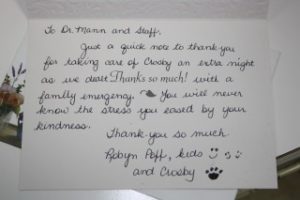 To Dr. Mann and Staff,
Just a quick note to thank-you
for taking care of Crosby an extra night
as we dealt Thanks so much! with a
family emergency. You will never
know the stress you eased by your
kindness.
Thank-you so much.
Robyn Poff, kids
and Crosby